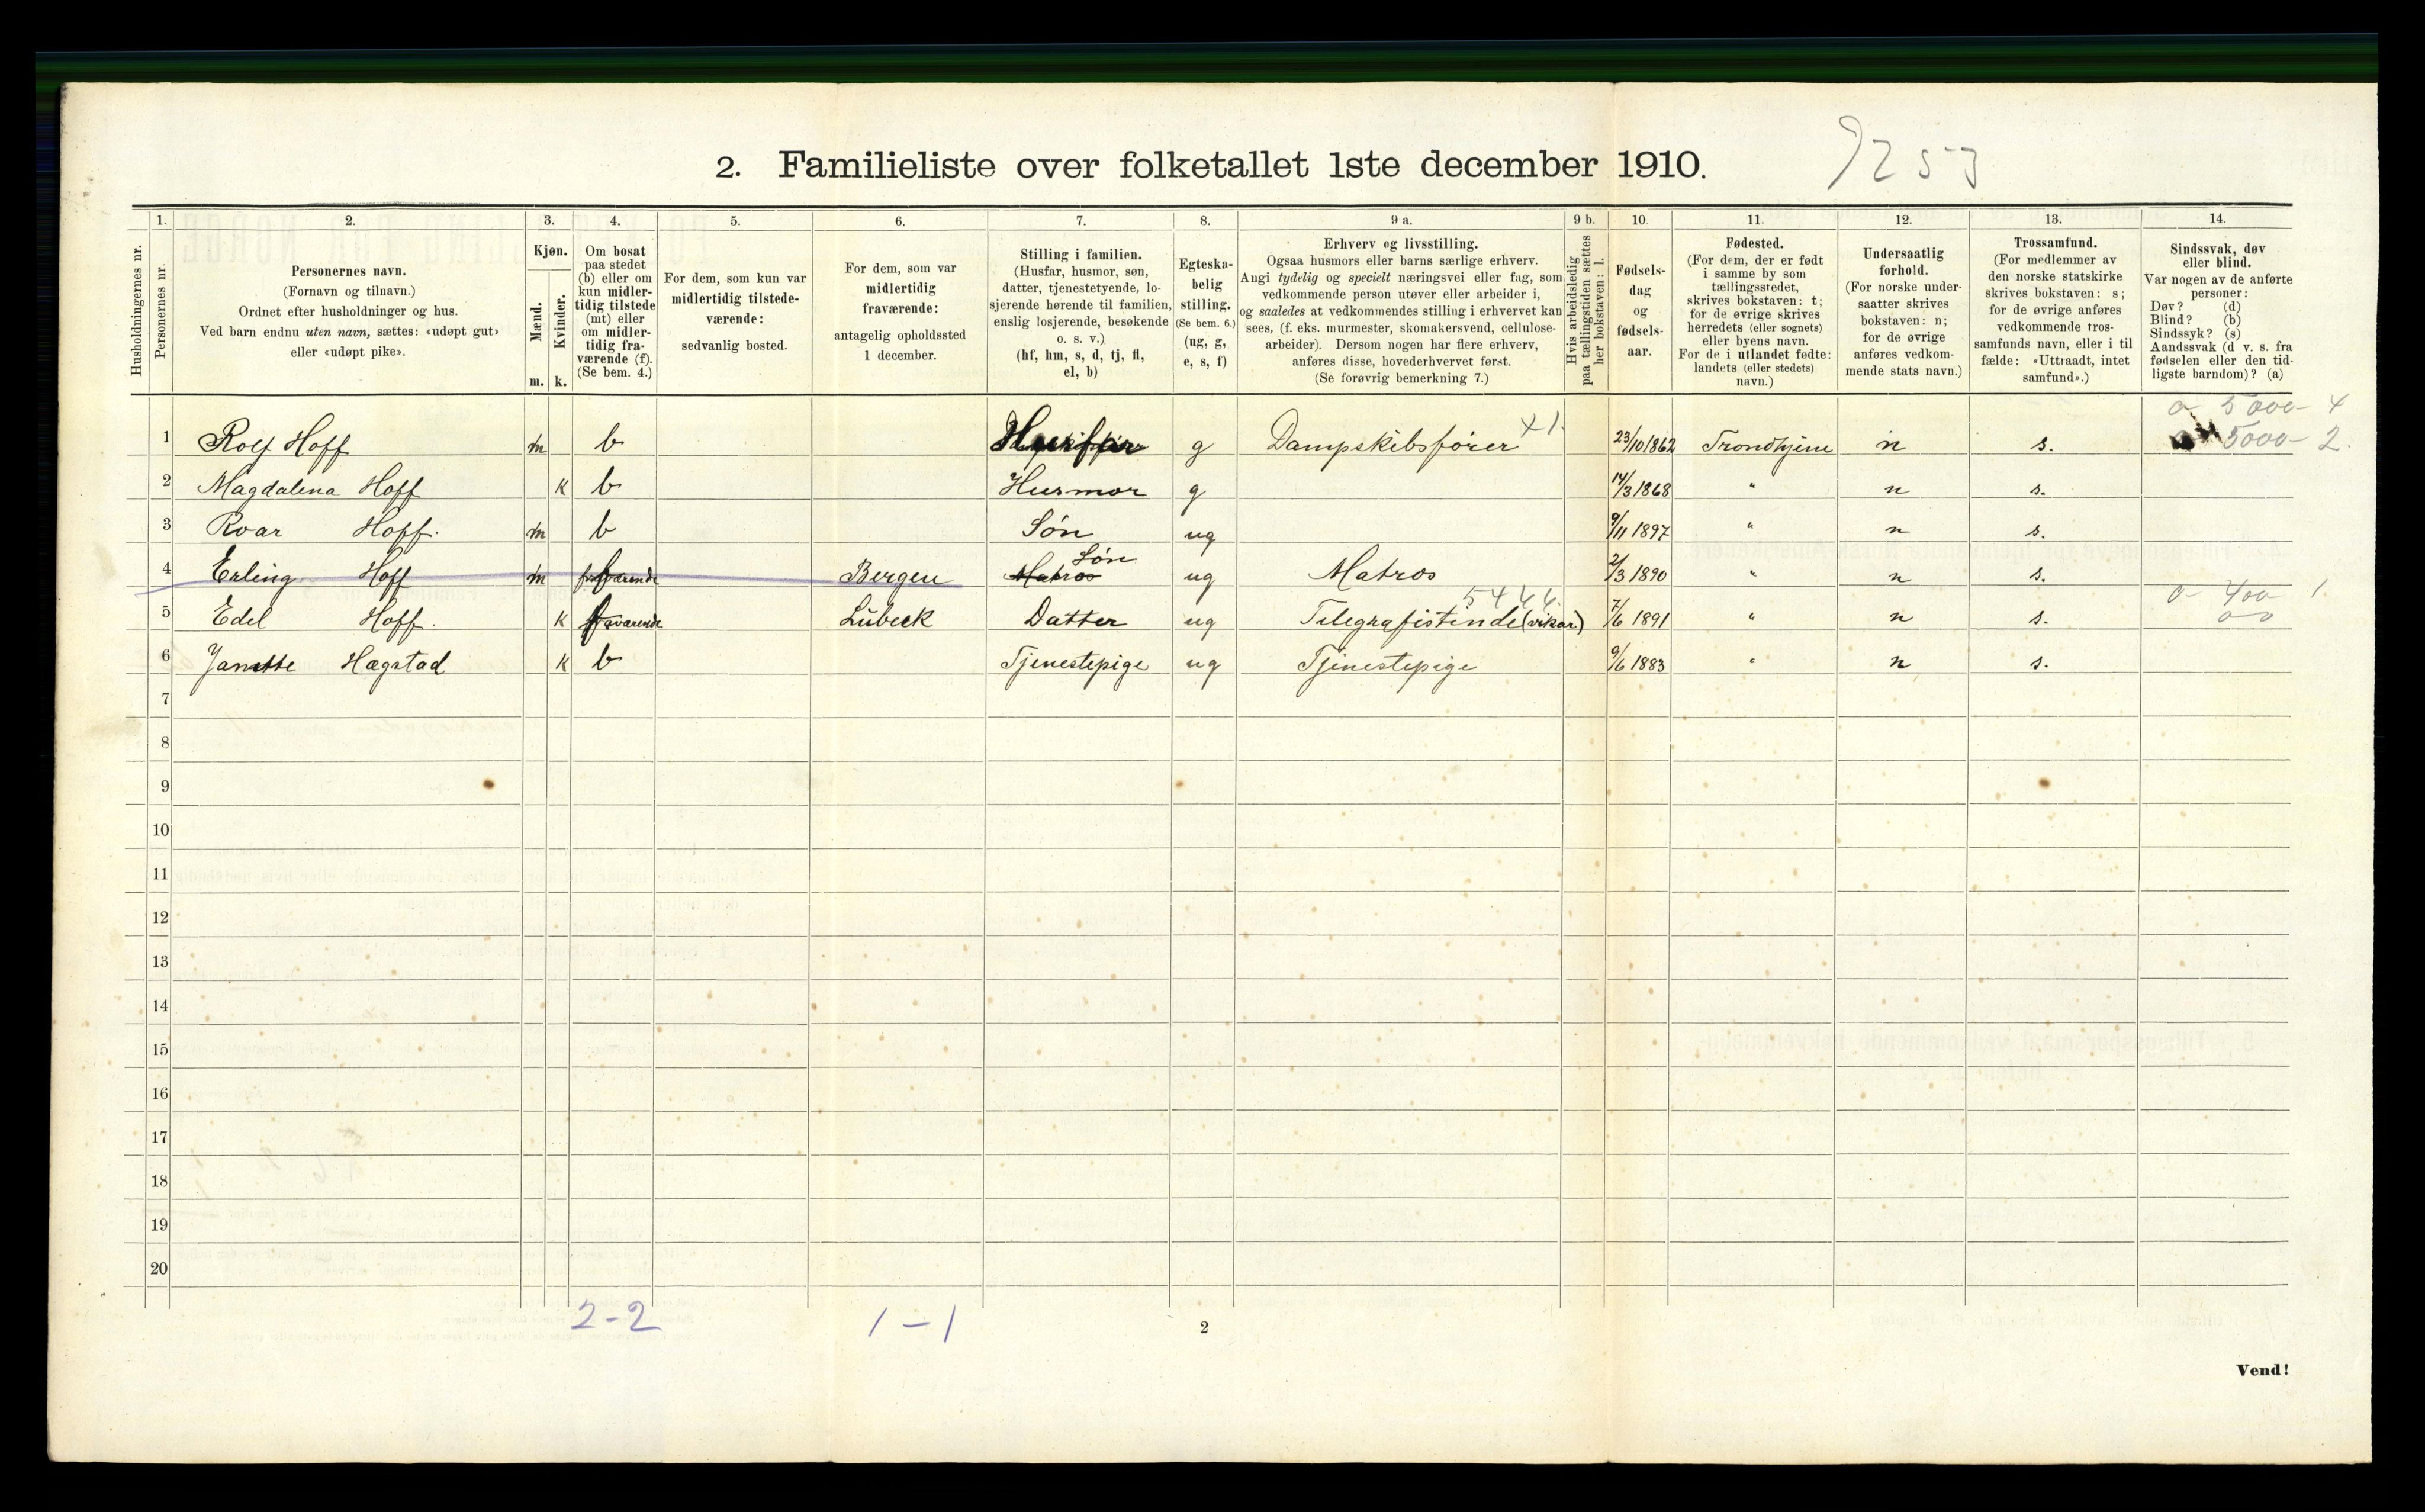 2. Familieliste over folketallet 1ste december 1910.
9253
1. 2. 3. 4. 5. 6. 7. 8. 9 a. 9 b. 10. 11. 12. 13. 14.
Husholdningernes nr.
Personernes nr.
Personernes navn.
(Fornavn og tilnavn.)
Ordnet efter husholdninger og hus.
Ved barn endnu uten navn, sættes: «udøpt gut»
eller «udøpt pike».
Kjøn.
Mænd.
Kvinder.
m. k.
Om bosat
paa stedet
(b) eller om
kun midler-
tidig tilstede
(mt) eller
om midler-
tidig fra-
værende (f).
(Se bem. 4.)
For dem, som kun var
midlertidig tilstede-
værende:
sedvanlig bosted.
For dem, som var
midlertidig
fraværende:
antagelig opholdssted
1 december.
Stilling i familien.
(Husfar, husmor, søn,
datter, tjenestetyende, lo-
sjerende hørende til familien,
enslig losjerende, besøkende
o. s. v.)
(hf, hm, s, d, tj, fl,
el, b)
Egteska-
belig
stilling.
(Se bem. 6.)
(ug, g,
e, s, f)
Erhverv og livsstilling.
Ogsaa husmors eller barns særlige erhverv.
Angi tydelig og specielt næringsvei eller fag, som
vedkommende person utøver eller arbeider i,
og saaledes at vedkommendes stilling i erhvervet kan
sees, (f. eks. murmester, skomakersvend, cellulose-
arbeider). Dersom nogen har flere erhverv,
anføres disse, hovederhvervet først.
(Se forøvrig bemerkning 7.)
Hvis arbeidsledig
paa tællingstiden sættes
her bokstaven: l.
Fødsels-
dag
og
fødsels-
aar.
Fødested.
(For dem, der er født
i samme by som
tællingsstedet,
skrives bokstaven: t;
for de øvrige skrives
herredets (eller sognets)
eller byens navn.
For de i utlandet fødte:
landets (eller stedets)
navn.)
Undersaatlig
forhold.
(For norske under-
saatter skrives
bokstaven: n;
for de øvrige
anføres vedkom-
mende stats navn.)
Trossamfund.
(For medlemmer av
den norske statskirke
skrives bokstaven: s;
for de øvrige anføres
vedkommende tros-
samfunds navn, eller i til
fælde: «Uttraadt, intet
samfund».)
Sindssvak, døv
eller blind.
Var nogen av de anførte
personer:
Døv? (d)
Blind? (b)
Sindssyk? (s)
Aandssvak (d v. s. fra
fødselen eller den tid-
ligste barndom)? (a)
0- 5000- 4
1 Rolf Hoff m b Husfar g Dampskibsfører x1. 23/10 1862 Trondhjem n s. 5000- 2.
2 Magdalena Hoff k b Husmor g 14/3 1868 " n s.
3 Roar Hoff. m b Søn ug 9/11 1897 " n s.
4 Erling Hoff m f Bergen Matros Søn ug Matros 2/3 1890 " n s.
5444
0- 400 1
5 Edel Hoff. k f Lübeck Datter ug Telegrafistinde (vikar) 7/6 1891 " n s. 00
6 Janette Hægstad k b Tjenestepige ug Tjenestepige 9/6 1883 " n s.
7
8
9
10
11
12
13
14
15
16
17
18
19
20
2-2 1-1
2
Vend!